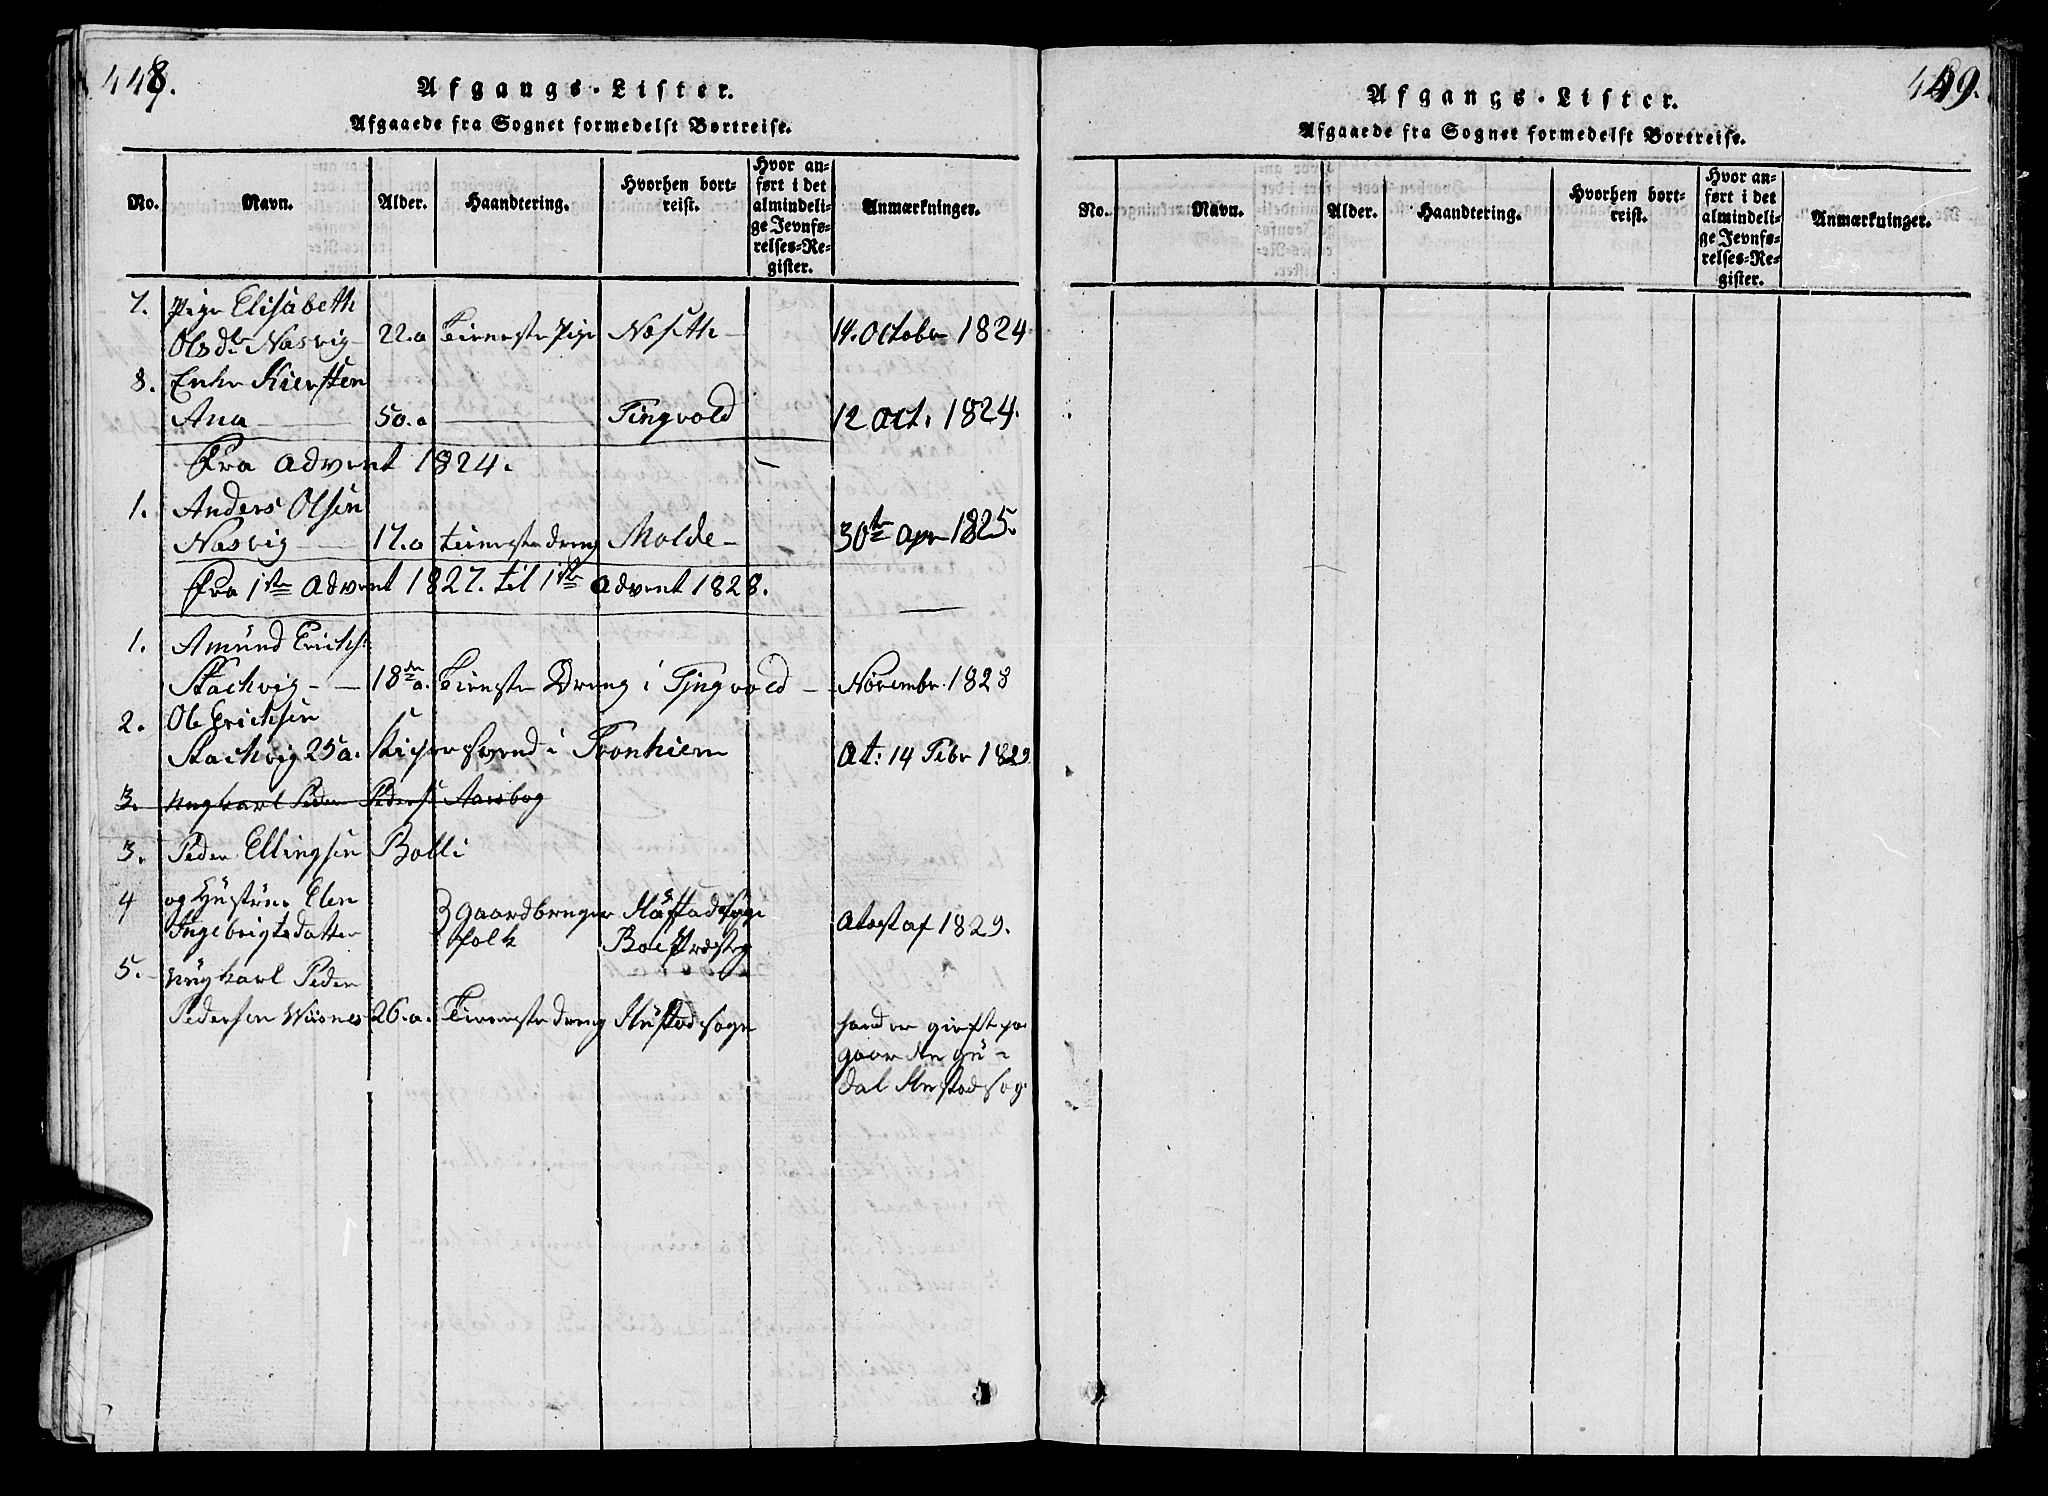 448.
Afgangs-Lister.
Afgaaede fra Sognet formedelst Bortreise.
No. Navn. Alder. Haandtering. Hvorhen bortreist. Hvor anført i det almindelige Jevnførelses-Register. Anmærkninger.
7. Pige Elisabeth
Olsdr Nasvig 22.a Tieneste Pige Nøseth 14. October 1824
8. Enke Kiersten
Ana 50.a Tingvold 12 Oct. 1824.
Fra Advent 1824.
1. Anders Olsen
Nasvig 17.a tieneste dreng Molde 30te Apr 1825.
Fra 1ste Advent 1827. til 1ste Advent 1828.
1. Amund Erichs:
Stachvig 18 a. Tieneste Dreng i Tingvold Novembr. 1828
2. Ole Erichsen
Stachvig 25a. i Tronhiem At: 14 Febr 1829
3. Ungkarl Peder Peders:
3. Peder Ellingsen Bolli
4 og Hustrue Elen
Ingebrigtsdatter gaardbruger folk Hustadsogn Attest af 1829.
5. Ungkarl Peder
Pedersen Wiisnes 26.a. Tieneste dreng Hustadsogn
gift paa
gaarden
dal Hustadsog
449.
Afgangs-Lister.
Afgaaede fra Sognet formedelst Bortreise.
No. Navn. Alder. Haandtering. Hvorhen bortreist. Hvor anført i det almindelige Jevnførelses-Register. Anmærkninger.